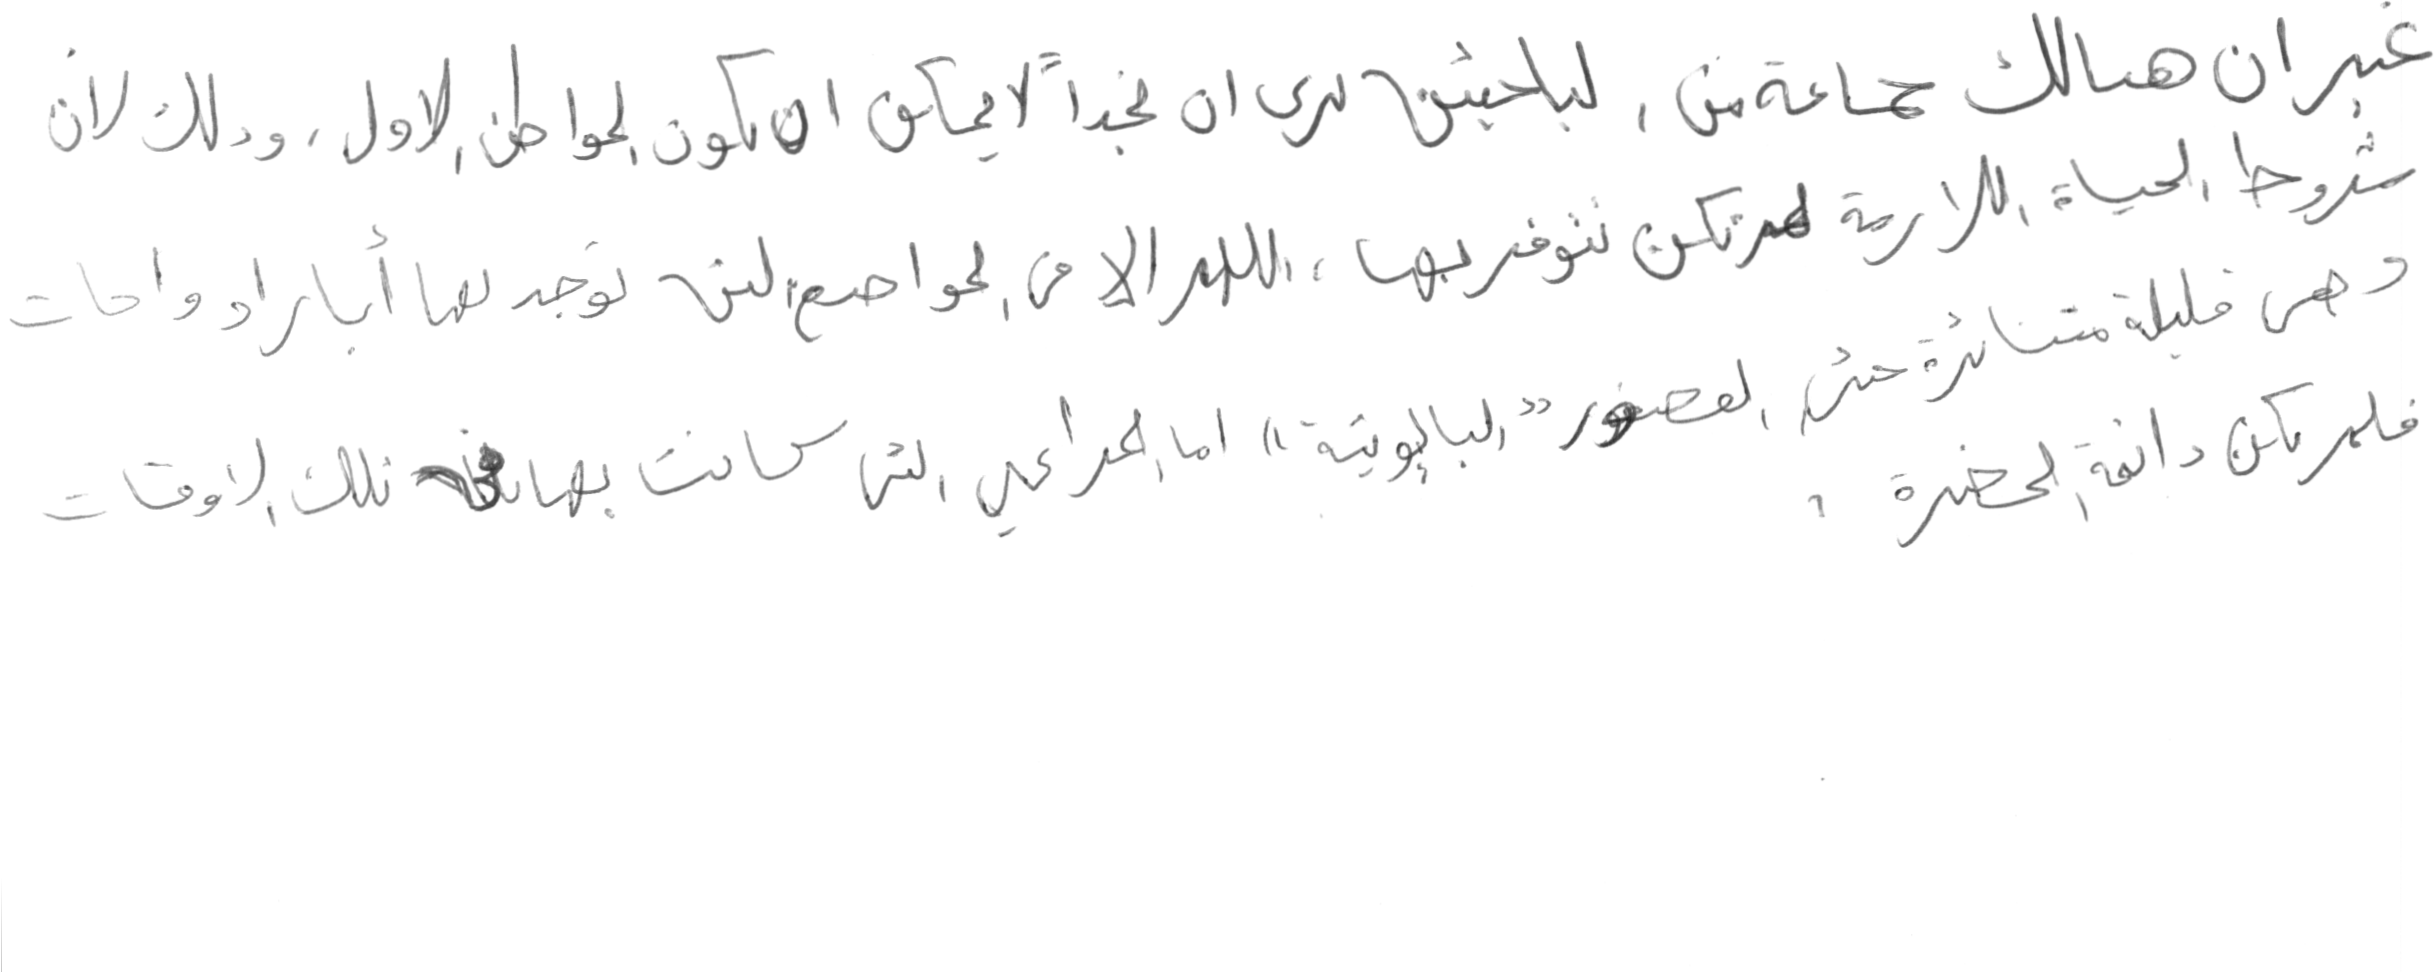 غير ان هنالك جماعة من الباحثين ترى ان نجداً لا يمكن ان تكون المواطن الاول، وذلك لان
شروط الحياة اللازمة لم تكن تتوفر بها، اللهم الا في المواضع التي توجد بها أبار او واحات
وهي قليلة متناثرة حتى العصور "البابوية" اما المراعي التي كانت بها في تلك الاوقات
فلم تكن دائمة الخضرة.